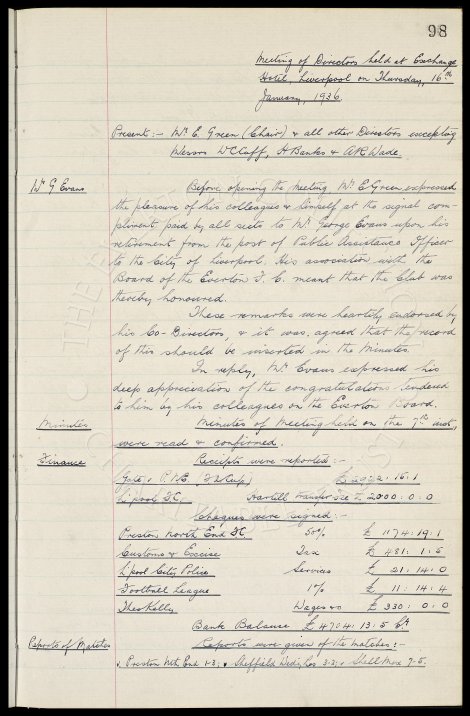 98
Meeting of Directors held at Exchange
Hotel, Liverpool on Thursday, 16th
January, 1936.
Present:- Mr. E. Green (Chair) & all other Directors excepting
Messrs W C Cuff, A Banks & A R Wade.
Mr G Evans
Before opening the meeting Mr. E Green expressed
the pleasure of his colleagues & himself at the signal com-
pliment paid by all sects to Mr. George Evans upon his
retirement from the post of Public Assistance Officer
to the City of Liverpool. His association with the
Board of the Everton F. C. meant that the Club was
thereby honoured.
These remarks were heartily endorsed by
his Co-Directors, & it was agreed that the record
of this should be inserted in the Minutes.
In reply, Mr. Evans expressed his
deep appreciation of the congratulations tendered
to him by his colleagues on the Everton Board.
Minutes
Minutes of Meeting held on the 7th inst,
were read & confirmed.
Finance
Receipts were reported:-
Gate, v P.N.E. (F A Cup) £2922. 16. 1
L'pool F.C. Hartill Transfer Fee £ 2000. 0. 0
Cheques were signed:-
Preston North End F.C. 50% £ 1174. 19. 1
Customs & Excise Tax £ 481. 1. 5
L'pool City Police Services £ 21. 14. 0
Football League 1% £ 11. 14. 4
Theo Kelly Wages &c £ 330. 0. 0
Bank Balance £ 4704. 13. 5
Reports of Matches
Reports were given of the matches:-
v. Preston Nth. End 1-3; v Sheffield Wed; Res 3-3; v Shell Mex 7-5.